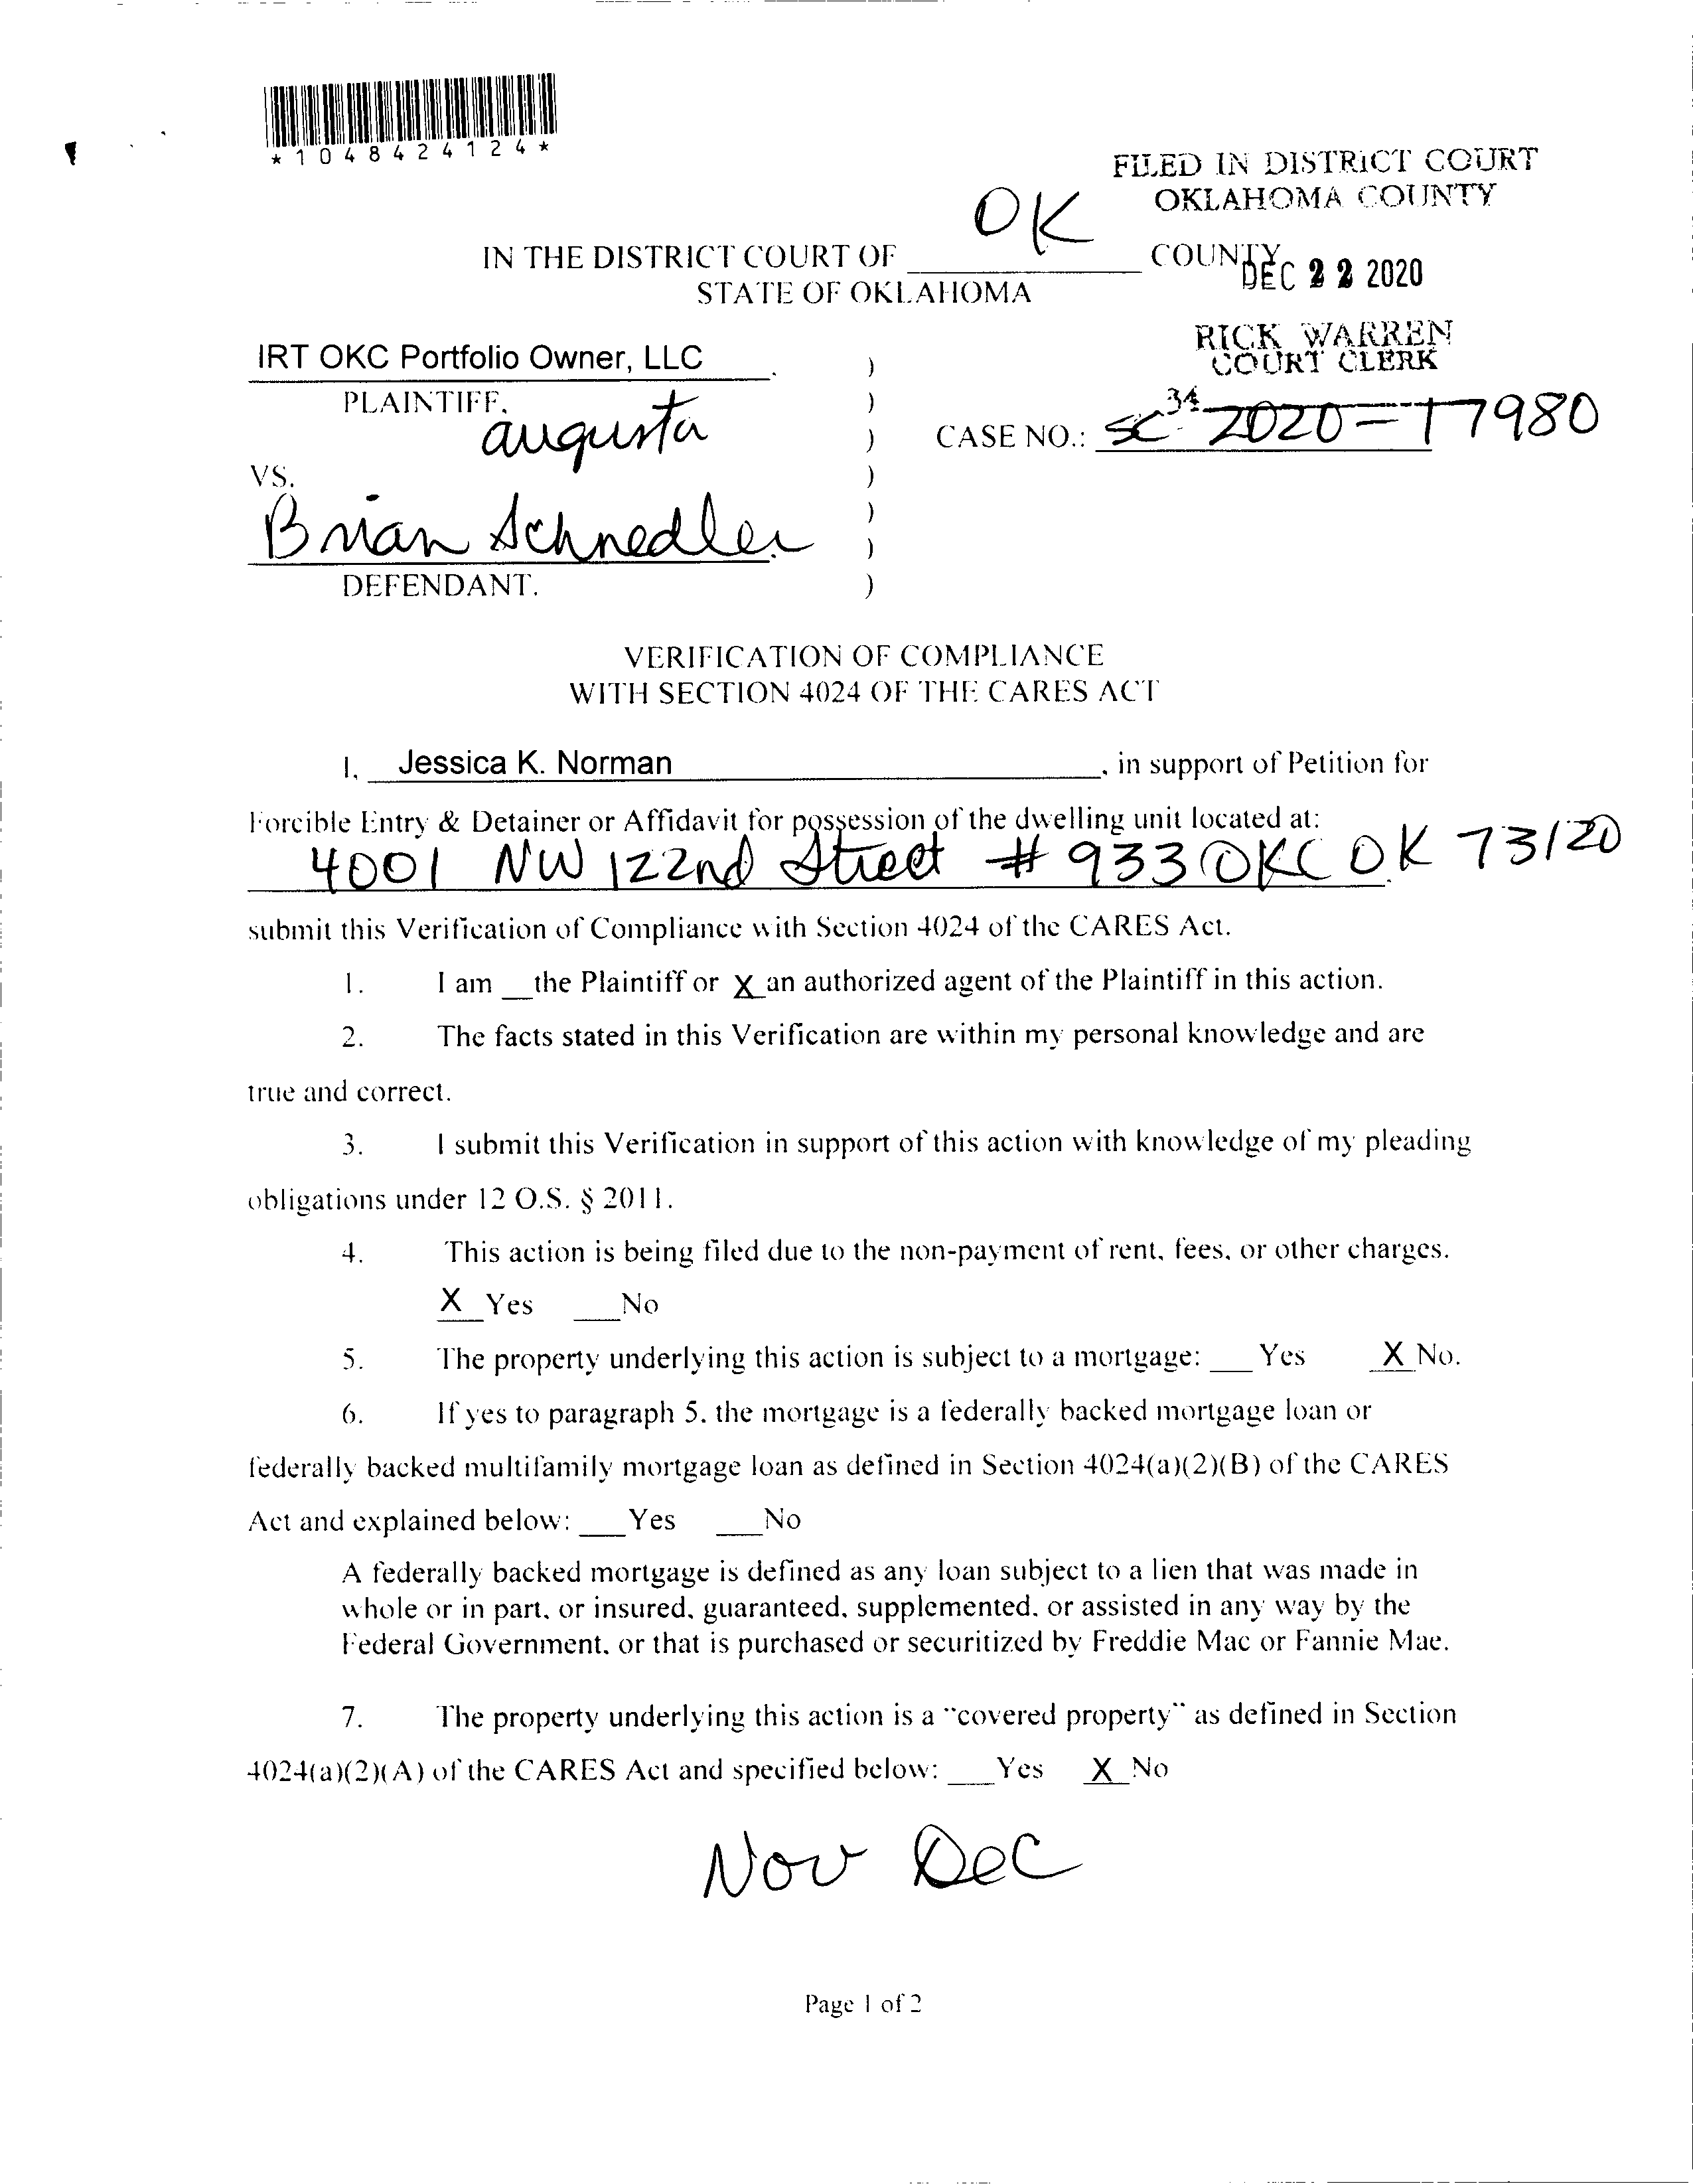 *1048424124*
FILED IN DISTRICT COURT
OKLAHOMA COUNTY
IN THE DISTRICT COURT OF OK COUNTY
DEC 22 2020
STATE OF OKLAHOMA
RICK WARREN
COURT CLERK
IRT OKC Portfolio Owner, LLC )
PLAINTIFF, )
augusta ) CASE NO.: SC-34-2020-17980
VS. )
)
Brian Schnedler )
DEFENDANT. )
VERIFICATION OF COMPLIANCE
WITH SECTION 4024 OF THE CARES ACT
I, Jessica K. Norman, in support of Petition for
Forcible Entry & Detainer or Affidavit for possession of the dwelling unit located at:
4001 NW 122nd Street #933 OKC OK 73120
submit this Verification of Compliance with Section 4024 of the CARES Act.
1. I am __the Plaintiff or X an authorized agent of the Plaintiff in this action.
2. The facts stated in this Verification are within my personal knowledge and are
true and correct.
3. I submit this Verification in support of this action with knowledge of my pleading
obligations under 12 O.S. § 2011.
4. This action is being filed due to the non-payment of rent, fees, or other charges.
X Yes ___No
5. The property underlying this action is subject to a mortgage: ___ Yes X No.
6. If yes to paragraph 5, the mortgage is a federally backed mortgage loan or
federally backed multifamily mortgage loan as defined in Section 4024(a)(2)(B) of the CARES
Act and explained below: ___Yes ___No
A federally backed mortgage is defined as any loan subject to a lien that was made in
whole or in part, or insured, guaranteed, supplemented, or assisted in any way by the
Federal Government, or that is purchased or securitized by Freddie Mac or Fannie Mae.
7. The property underlying this action is a "covered property" as defined in Section
4024(a)(2)(A) of the CARES Act and specified below: ___Yes X No
Nov Dec
Page 1 of 2